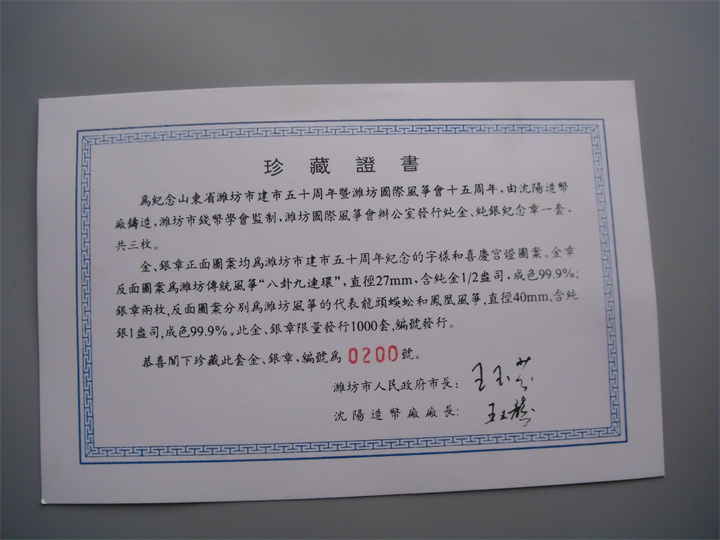 珍藏證書
為紀念山東省濰坊市建市五十周年暨濰坊國際風箏會十五周年,由沈陽造幣
廠鑄造,濰坊市錢幣學會監制,濰坊國際風箏會辦公室發行純金、純銀紀念章一套,
共三枚。
金、銀章正面圖案均為濰坊市建市五十周年紀念的字樣和喜慶宮燈圖案。金章
反面圖案為濰坊傳統風箏“八卦九連環”,直徑27mm,含純金1/2盎司,成色99.9%;
銀章兩枚,反面圖案分別為濰坊風箏的代表龍頭蜈蚣和鳳凰風箏,直徑40mm,含純
銀1盎司,成色99.9%。此金、銀章限量發行1000套,編號發行。
恭喜閣下珍藏此套金、銀章,編號為 0200 號。
濰坊市人民政府市長:王玉芬
沈陽造幣廠廠長: